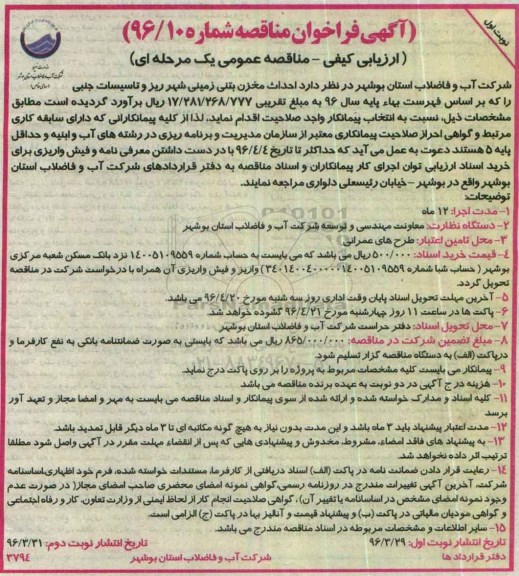 نوبت اول
(آگهی فراخوان مناقصه شماره ۹۶/۱۰)
(ارزیابی کیفی - مناقصه عمومی یک مرحله ای)
شرکت آب و فاضلاب استان بوشهر در نظر دارد احداث مخزن بتنی زمینی شهر ریز و تاسیسات جنبی
را که بر اساس فهرست بهاء پایه سال ۹۶ به مبلغ تقریبی ۱۷/۲۸۱/۳۶۸/۷۷۷ ریال برآورد گردیده است مطابق
مشخصات ذیل، نسبت به انتخاب پیمانکار واجد صلاحیت اقدام نماید. لذا از کلیه پیمانکارانی که دارای سابقه کاری
مرتبط و گواهی احراز صلاحیت پیمانکاری معتبر از سازمان مدیریت و برنامه ریزی در رشته های آب و ابنیه و حداقل
پایه ۵ هستند دعوت به عمل می آید که حداکثر تا تاریخ ۹۶/۴/۴ با در دست داشتن معرفی نامه و فیش واریزی برای
خرید اسناد ارزیابی توان اجرای کار پیمانکاران و اسناد مناقصه به دفتر قراردادهای شرکت آب و فاضلاب استان
بوشهر واقع در بوشهر - خیابان رئیسعلی دلواری مراجعه نمایند.
توضیحات:
۱- مدت اجرا: ۱۲ ماه
۲- دستگاه نظارت: معاونت مهندسی و توسعه شرکت آب و فاضلاب استان بوشهر
۳- محل تامین اعتبار: طرح های عمرانی
۴- قیمت خرید اسناد: ۵۰۰/۰۰۰ ریال می باشد که می بایست به حساب شماره ۱۴۰۰۵۱۰۹۵۵۹ نزد بانک مسکن شعبه مرکزی
بوشهر (حساب شبا شماره ۳۴۰۱۴۰۰۴۰۰۰۰۰۱۴۰۰۵۱۰۹۵۵۹) واریز و فیش واریزی آن همراه با درخواست شرکت در مناقصه
تحویل گردد.
۵- آخرین مهلت تحویل اسناد پایان وقت اداری روز سه شنبه مورخ ۹۶/۴/۲۰ می باشد.
۶- پاکت ها در ساعت ۱۱ روز چهارشنبه مورخ ۹۶/۴/۲۱ گشوده خواهد شد.
۷- محل تحویل اسناد: دفتر حراست شرکت آب و فاضلاب استان بوشهر
۸- مبلغ تضمین شرکت در مناقصه: ۸۶۵/۰۰۰/۰۰۰ ریال می باشد که بایستی به صورت ضمانتنامه بانکی به نفع کارفرما و
در پاکت (الف) به دستگاه مناقصه گزار تسلیم شود.
۹- پیمانکار می بایست کلیه مشخصات مربوط به پروژه را بر روی پاکت درج نماید.
۱۰- هزینه درج آگهی در دو نوبت به عهده برنده مناقصه می باشد
۱۱- کلیه اسناد و مدارک خواسته شده و ارائه شده از سوی پیمانکار و اسناد مناقصه می بایست به مهر و امضا مجاز و تعهد آور
برسد
۱۲- مدت اعتبار پیشنهاد باید ۳ ماه باشد و این مدت بدون نیاز به هیچ گونه مکاتبه ای تا ۳ ماه دیگر قابل تمدید باشد.
۱۳- به پیشنهاد های فاقد امضاء، مشروط، مخدوش و پیشنهادی هایی که پس از انقضاء مهلت مقرر در آگهی واصل شود مطلقا
ترتیب اثر داده نخواهد شد.
۱۴- رعایت قرار دادن ضمانت نامه در پاکت (الف) اسناد دریافتی از کارفرما، مستندات خواسته شده، فرم خود اظهاری، اساسنامه
شرکت، آخرین آگهی تغییرات مندرج در روزنامه رسمی، گواهی نمونه امضای محضری صاحب امضای مجاز( در صورت عدم
وجود نمونه امضای مشخص در اساسنامه یا تغییر آن)، گواهی صلاحیت انجام کار از لحاظ ایمنی از وزارت تعاون، کار و رفاه اجتماعی
و گواهی مودیان مالیاتی در پاکت (ب) و پیشنهاد قیمت و آنالیز بها در پاکت (ج) الزامی است.
۱۵- سایر اطلاعات و مشخصات مربوطه در اسناد مناقصه مندرج می باشد.
تاریخ انتشار نوبت اول: ۹۶/۳/۲۹
تاریخ انتشار نوبت دوم: ۹۶/۳/۳۱
دفتر قرارداد ها
شرکت آب و فاضلاب استان بوشهر
۳۷۹۴